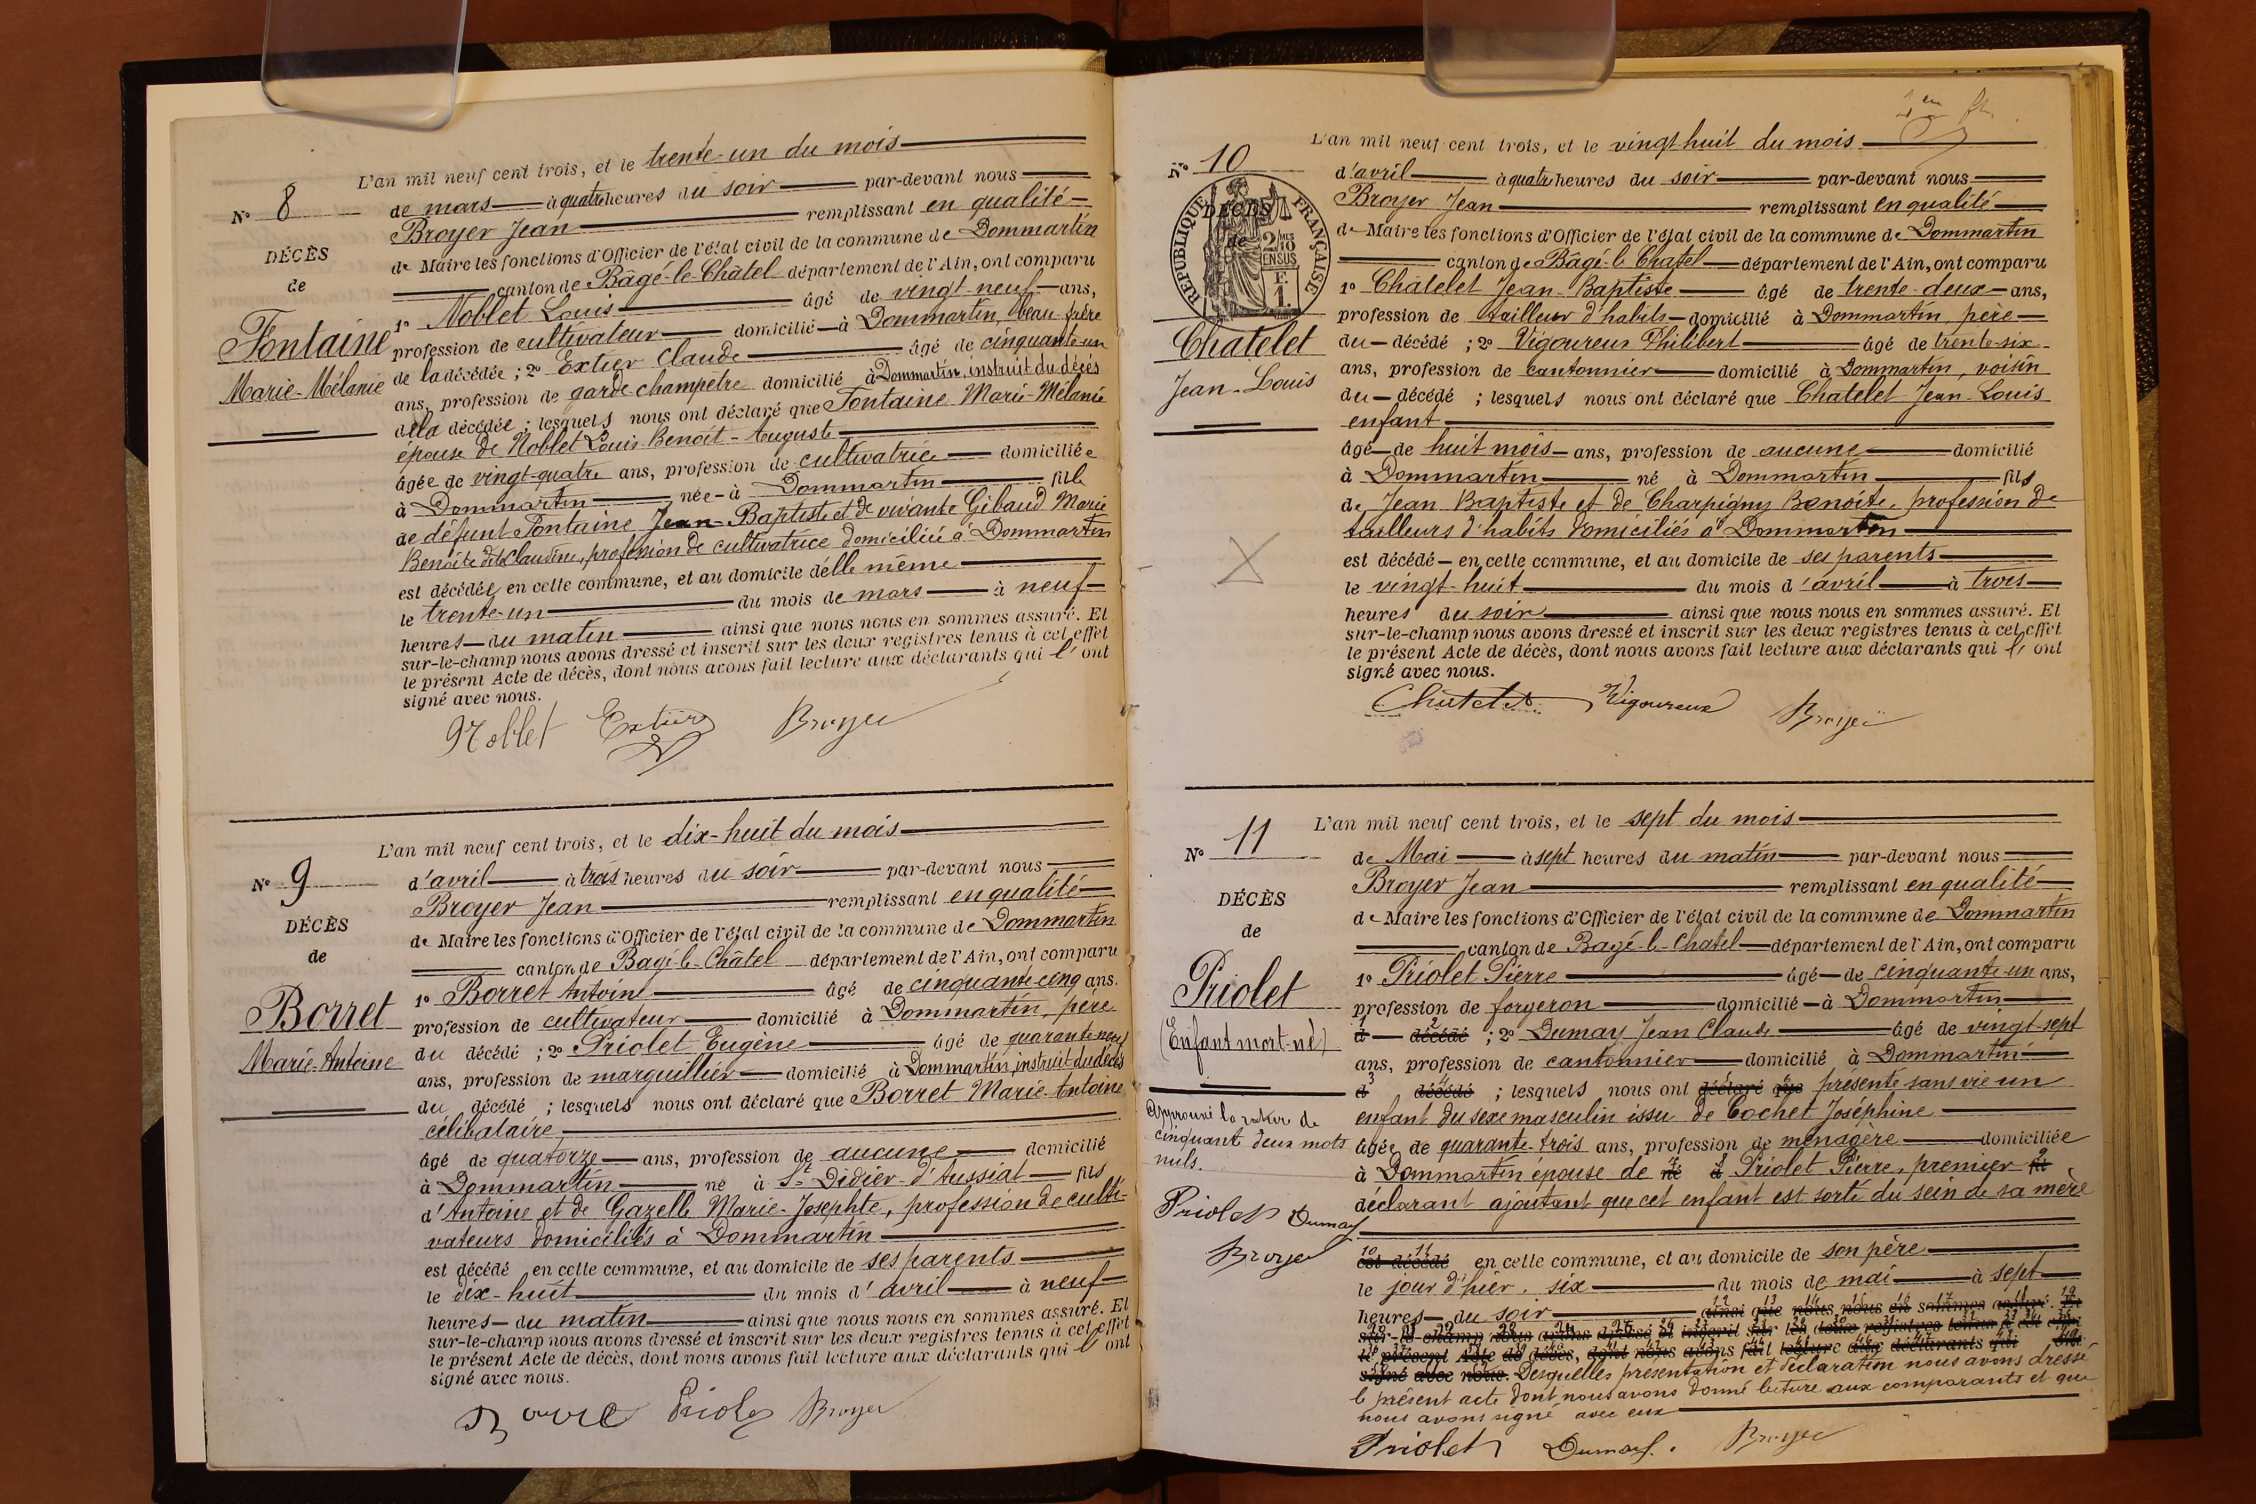 L'an mil neuf cent trois, et le trente-un du mois
N° 8
de mars à quatre heures du soir par-devant nous
Broyer Jean remplissant en qualité
DÉCÈS
de Maire les fonctions d'Officier de l'état civil de la commune de Dommartin
de
canton de Bâgé-le-Châtel département de l'Ain, ont comparu
1° Noblet Louis âgé de vingt-neuf ans,
Fontaine
profession de cultivateur domicilié à Dommartin, beau frère
Marie-Mélanie
de la décédée ; 2° Extier Claude âgé de cinquante-un
ans, profession de garde champêtre domicilié à Dommartin, instruit du décès
de la décédée ; lesquels nous ont déclaré que Fontaine Marie-Mélanie
épouse de Noblet Louis Benoit-Auguste
âgée de vingt-quatre ans, profession de cultivatrice domiciliée
à Dommartin née à Dommartin fille
de défunt Fontaine Jean-Baptiste et de vivante Gibaud Marie
Benoite dite Claudine, profession de cultivatrice domiciliée à Dommartin
est décédée en cette commune, et au domicile d'elle même
le trente-un du mois de mars à neuf
heures du matin ainsi que nous nous en sommes assuré. Et
sur-le-champ nous avons dressé et inscrit sur les deux registres tenus à cet effet
le présent Acte de décès, dont nous avons fait lecture aux déclarants qui l'ont
signé avec nous.
Noblet Extier Broyer
L'an mil neuf cent trois, et le dix-huit du mois
N° 9
d'avril à trois heures du soir par-devant nous
Broyer Jean remplissant en qualité
DÉCÈS
de Maire les fonctions d'Officier de l'état civil de la commune de Dommartin
de
canton de Bagé-le-Châtel département de l'Ain, ont comparu
1° Borret Antoine âgé de cinquante-cinq ans.
Borret
profession de cultivateur domicilié à Dommartin, père
Marie-Antoine
du décédé ; 2° Priolet Eugène âgé de quarante-neuf
ans, profession de marguillier domicilié à Dommartin, instruit du décès
du décédé ; lesquels nous ont déclaré que Borret Marie-Antoine
célibataire
âgé de quatorze ans, profession de aucune domicilié
à Dommartin né à St Didier-d'Aussiat fils
d'Antoine et de Gazelle Marie-Josephte, profession de culti-
vateurs domiciliés à Dommartin
est décédé en cette commune, et au domicile de ses parents
le dix-huit du mois d'avril à neuf
heures du matin ainsi que nous nous en sommes assuré. Et
sur-le-champ nous avons dressé et inscrit sur les deux registres tenus à cet effet
le présent Acte de décès, dont nous avons fait lecture aux déclarants qui l'ont
signé avec nous.
Borret Priolet Broyer
L'an mil neuf cent trois, et le vingt-huit du mois
N° 10
d'avril à quatre heures du soir par-devant nous
Broyer Jean remplissant en qualité
RÉPUBLIQUE FRANÇAISE
DÉCÈS
de
2/10 EN SUS
F. 1.
de Maire les fonctions d'Officier de l'état civil de la commune de Dommartin
canton de Bâgé-le-Chatel département de l'Ain, ont comparu
1° Chatelet Jean-Baptiste âgé de trente-deux ans,
profession de tailleur d'habits domicilié à Dommartin, père
Chatelet
Jean-Louis
du décédé ; 2° Vigoureux Philibert âgé de trente-six
ans, profession de cantonnier domicilié à Dommartin, voisin
du décédé ; lesquels nous ont déclaré que Chatelet Jean-Louis
enfant
âgé de huit mois ans, profession de aucune domicilié
à Dommartin né à Dommartin fils
de Jean Baptiste et de Charpigny Benoite, profession de
tailleurs d'habits domiciliés à Dommartin
est décédé en cette commune, et au domicile de ses parents
le vingt-huit du mois d'avril à trois
heures du soir ainsi que nous nous en sommes assuré. Et
sur-le-champ nous avons dressé et inscrit sur les deux registres tenus à cet effet
le présent Acte de décès, dont nous avons fait lecture aux déclarants qui l'ont
signé avec nous.
Chatelet Vigoureux Broyer
L'an mil neuf cent trois, et le sept du mois
N° 11
de Mai à sept heures du matin par-devant nous
Broyer Jean remplissant en qualité
DÉCÈS
de Maire les fonctions d'Officier de l'état civil de la commune de Dommartin
de
canton de Bagé-le-Chatel département de l'Ain, ont comparu
1° Priolet Pierre âgé de cinquante-un ans,
Priolet
profession de forgeron domicilié à Dommartin
(Enfant mort-né)
d décédé ; 2° Dumay Jean Claude âgé de vingt-sept
ans, profession de cantonnier domicilié à Dommartin
d décédé ; lesquels nous ont déclaré que présenté sans vie un
enfant du sexe masculin issu de Cochet Joséphine
Approuvé la rature de
cinquante deux mots
nuls.
âgée de quarante-trois ans, profession de ménagère domiciliée
à Dommartin épouse de né à Priolet Pierre, premier fil
déclarant ajoutant que cet enfant est sorti du sein de sa mère
Priolet Dumay
Broyer
est décédé en cette commune, et au domicile de son père
le jour d'hier, six du mois de mai à sept
heures du soir ainsi que nous nous en sommes assuré. Et
sur-le-champ nous avons dressé et inscrit sur les deux registres tenus à cet effet
le présent Acte de décès, dont nous avons fait lecture aux déclarants qui ont
signé avec nous. Desquelles présentation et déclaration nous avons dressé
le présent acte dont nous avons donné lecture aux comparants et que
nous avons signé avec eux
Priolet Dumay. Broyer